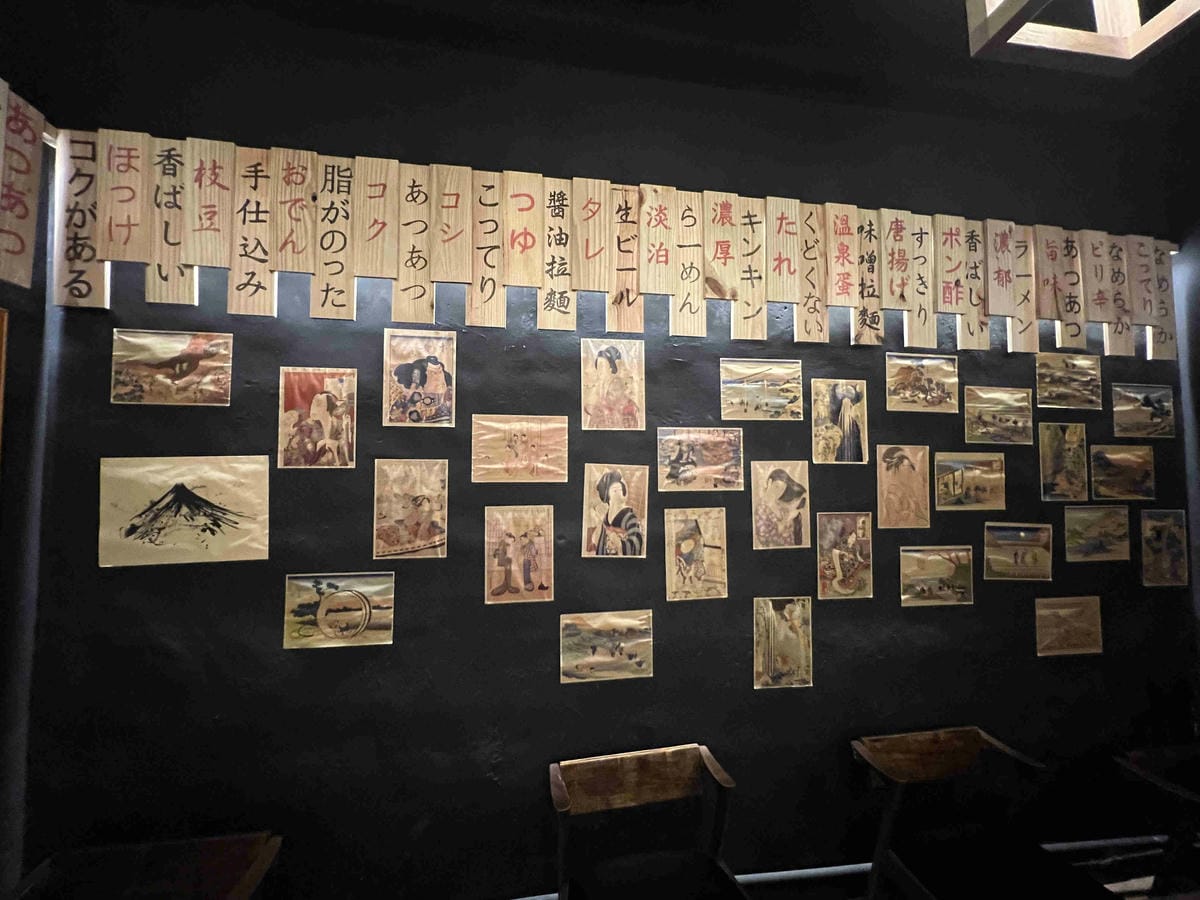 あつあつ
コクがある
ほっけ
香ばしい
枝豆
手仕込み
おでん
脂がのった
コク
あつあつ
コシ
こってり
つゆ
醤油拉麺
タレ
生ビール
淡泊
らーめん
濃厚
キンキン
たれ
くどくない
温泉蛋
味噌拉麺
唐揚げ
すっきり
ポン酢
香ばしい
濃郁
ラーメン
旨味
あつあつ
ピリ辛
なめらか
こってり
なめらか